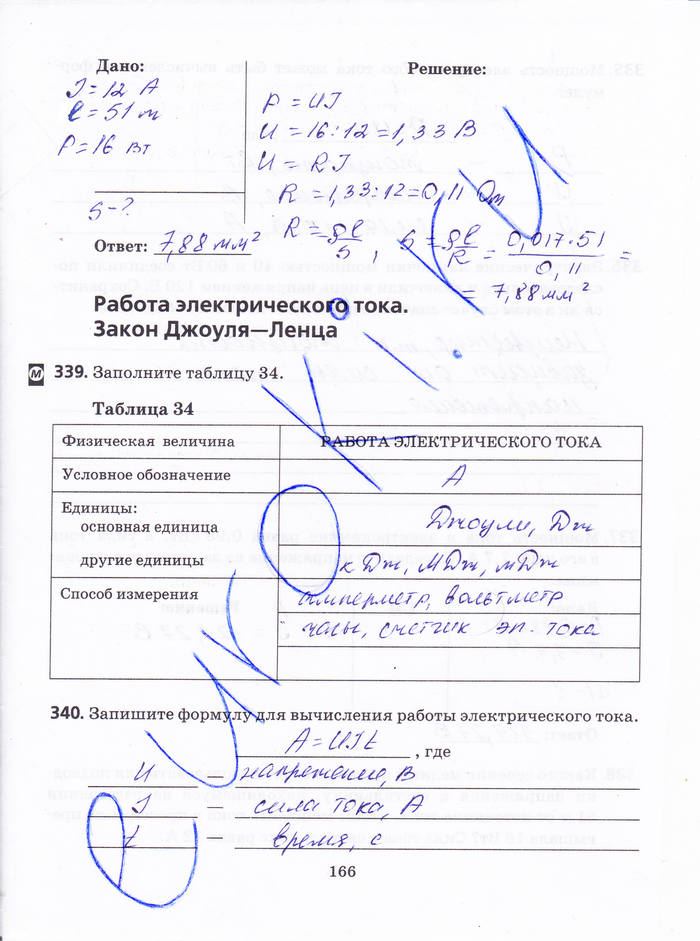 Дано:
Решение:
I = 12 А
ℓ = 51 м
P = 16 Вт
S - ?
P = UI
U = 16 : 12 = 1,33 В
U = RI
R = 1,33 : 12 = 0,11 Ом
R = ρℓ/S , S = ρℓ/R = 0,017·51/0,11 =
= 7,88 мм²
Ответ: 7,88 мм²
Работа электрического тока.
Закон Джоуля—Ленца
М 339. Заполните таблицу 34.
Таблица 34
Физическая величина РАБОТА ЭЛЕКТРИЧЕСКОГО ТОКА
Условное обозначение А
Единицы:
основная единица Джоули, Дж
другие единицы кДж, МДж, мДж
Способ измерения амперметр, вольтметр
часы, счетчик эл. тока
340. Запишите формулу для вычисления работы электрического тока.
A = UIt , где
U — напряжение, В
I — сила тока, А
t — время, с
166